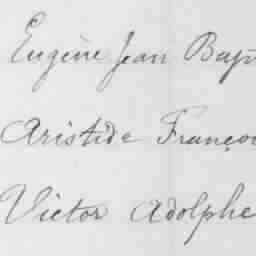 Eugène Jean Bap
Aristide Franço
Victor Adolphe